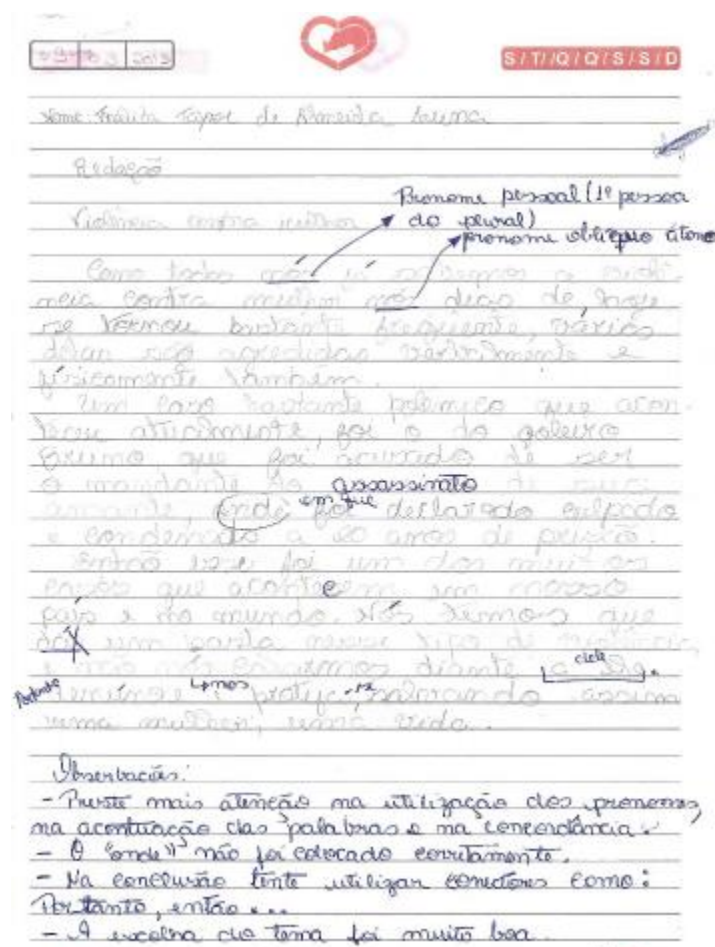 2013
S/T/Q/Q/S/S/D
Nome: de Almeida
Redação
Pronome pessoal (1ª pessoa
Violência contra mulher do plural)
pronome oblíquo átono
Como todos nós já sabemos a violê-
ncia contra mulher nós dias de hoje
se tornou bastante frequente, várias
delas são agredidas verbalmente e
fisicamente também.
Um caso bastante polêmico que acon-
teceu atualmente, foi o do goleiro
Bruno que foi acusado de ser
o mandante do assassinato de sua
em que
amante, onde foi declarado culpado
e condenado a 20 anos de prisão.
Então esse foi um dos muitos
casos que acontecem em nosso
país e no mundo. Nós temos que
dar um basta nesse tipo de violência,
e não nos diante
dela.
Portanto
+mos
salvando assim
uma mulher, uma vida.
Observações:
- Preste mais atenção na utilização dos pronomes,
na acentuação das palabras e na concordância.
- O "onde" não foi colocado corretamente.
- Na conclusão tente utilizar conectores como:
Portanto, então...
- A escolha do tema foi muito boa.